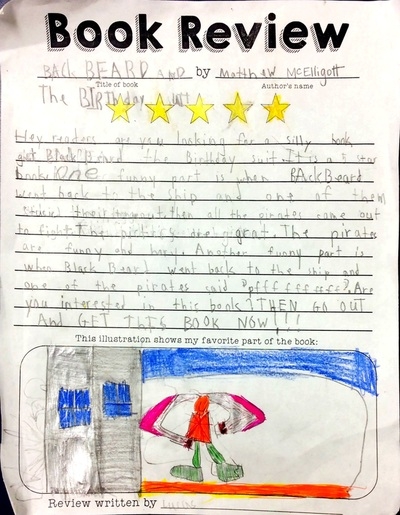 Book Review
BACK BEARD AND by Matthew McElligott
Title of book Author's name
The BIRthday suit
Hey readers are you looking for a silly book
get Black Beard the Birthday suit. It is a 5 star
book. One funny part is when BAckBeard
went back to the ship and one of them
then all the pirates came out
to fight. The are great. The pirates
are funny and hary. Another funny part is
when Black Beard went back to the ship and
one of the pirates said "offfffffff". Are
you interested in this book? THEN GO OUT
AND GET THIS BOOK NOW!!!
This illustration shows my favorite part of the book:
Review written by